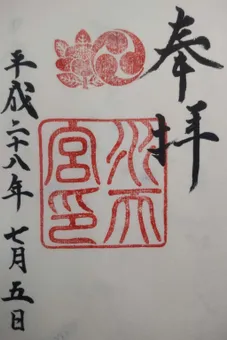 奉拝
水天
宮印
平成二十八年七月五日